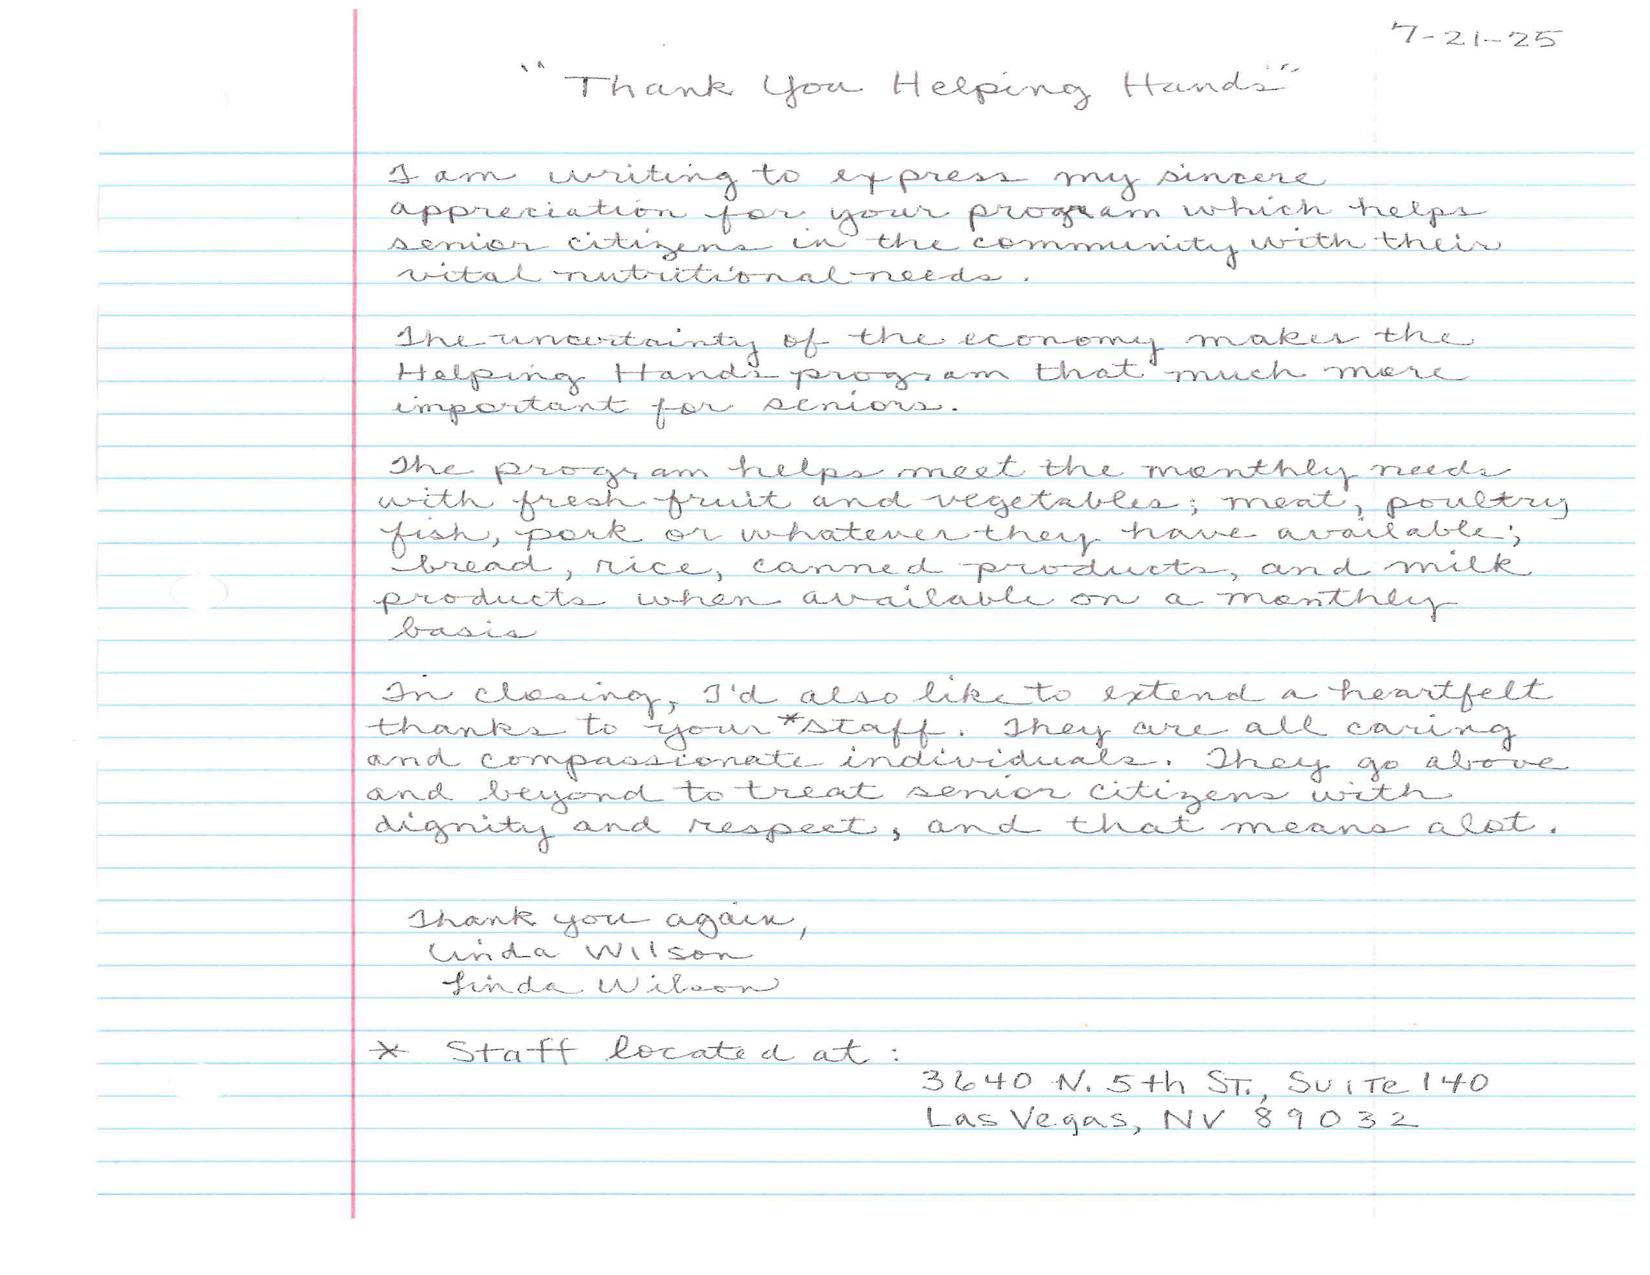 7-21-25
"Thank You Helping Hands"
I am writing to express my sincere
appreciation for your program which helps
senior citizens in the community with their
vital nutritional needs.
The uncertainty of the economy makes the
Helping Hands program that much more
important for seniors.
The program helps meet the monthly needs
with fresh fruit and vegetables; meat, poultry
fish, pork or whatever they have available;
bread, rice, canned products, and milk
products when available on a monthly
basis
In closing, I'd also like to extend a heartfelt
thanks to your *staff. They are all caring
and compassionate individuals. They go above
and beyond to treat senior citizens with
dignity and respect, and that means alot.
Thank you again,
Linda Wilson
Linda Wilson
* Staff located at:
3640 N. 5th ST., Suite 140
Las Vegas, NV 89032